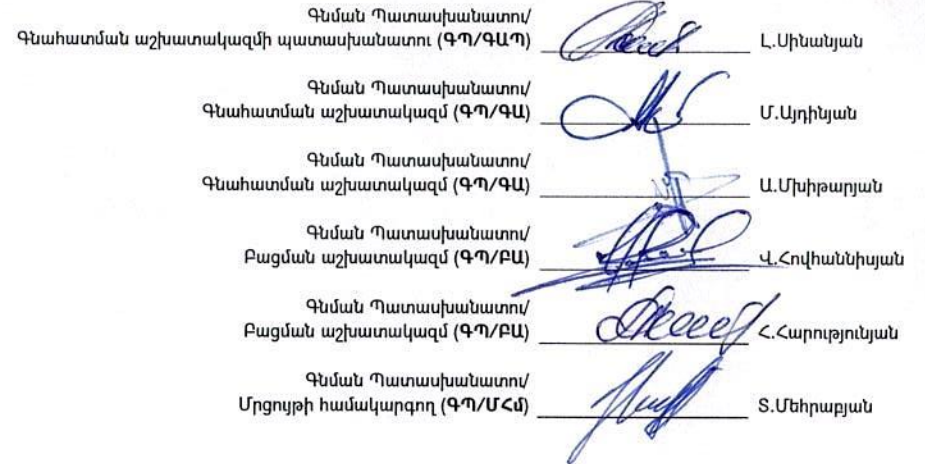 Գնման Պատասխանատու/
Գնահատման աշխատակազմի պատասխանատու (ԳՊ/ԳԱՊ) Լ.Սինանյան
Գնման Պատասխանատու/
Գնահատման աշխատակազմ (ԳՊ/ԳԱ) Մ.Այդինյան
Գնման Պատասխանատու/
Գնահատման աշխատակազմ (ԳՊ/ԳԱ) Ա.Մխիթարյան
Գնման Պատասխանատու/
Բացման աշխատակազմ (ԳՊ/ԲԱ) Վ.Հովհաննիսյան
Գնման Պատասխանատու/
Բացման աշխատակազմ (ԳՊ/ԲԱ) Հ.Հարությունյան
Գնման Պատասխանատու/
Մրցույթի համակարգող (ԳՊ/ՄՀմ) Տ.Մեհրաբյան